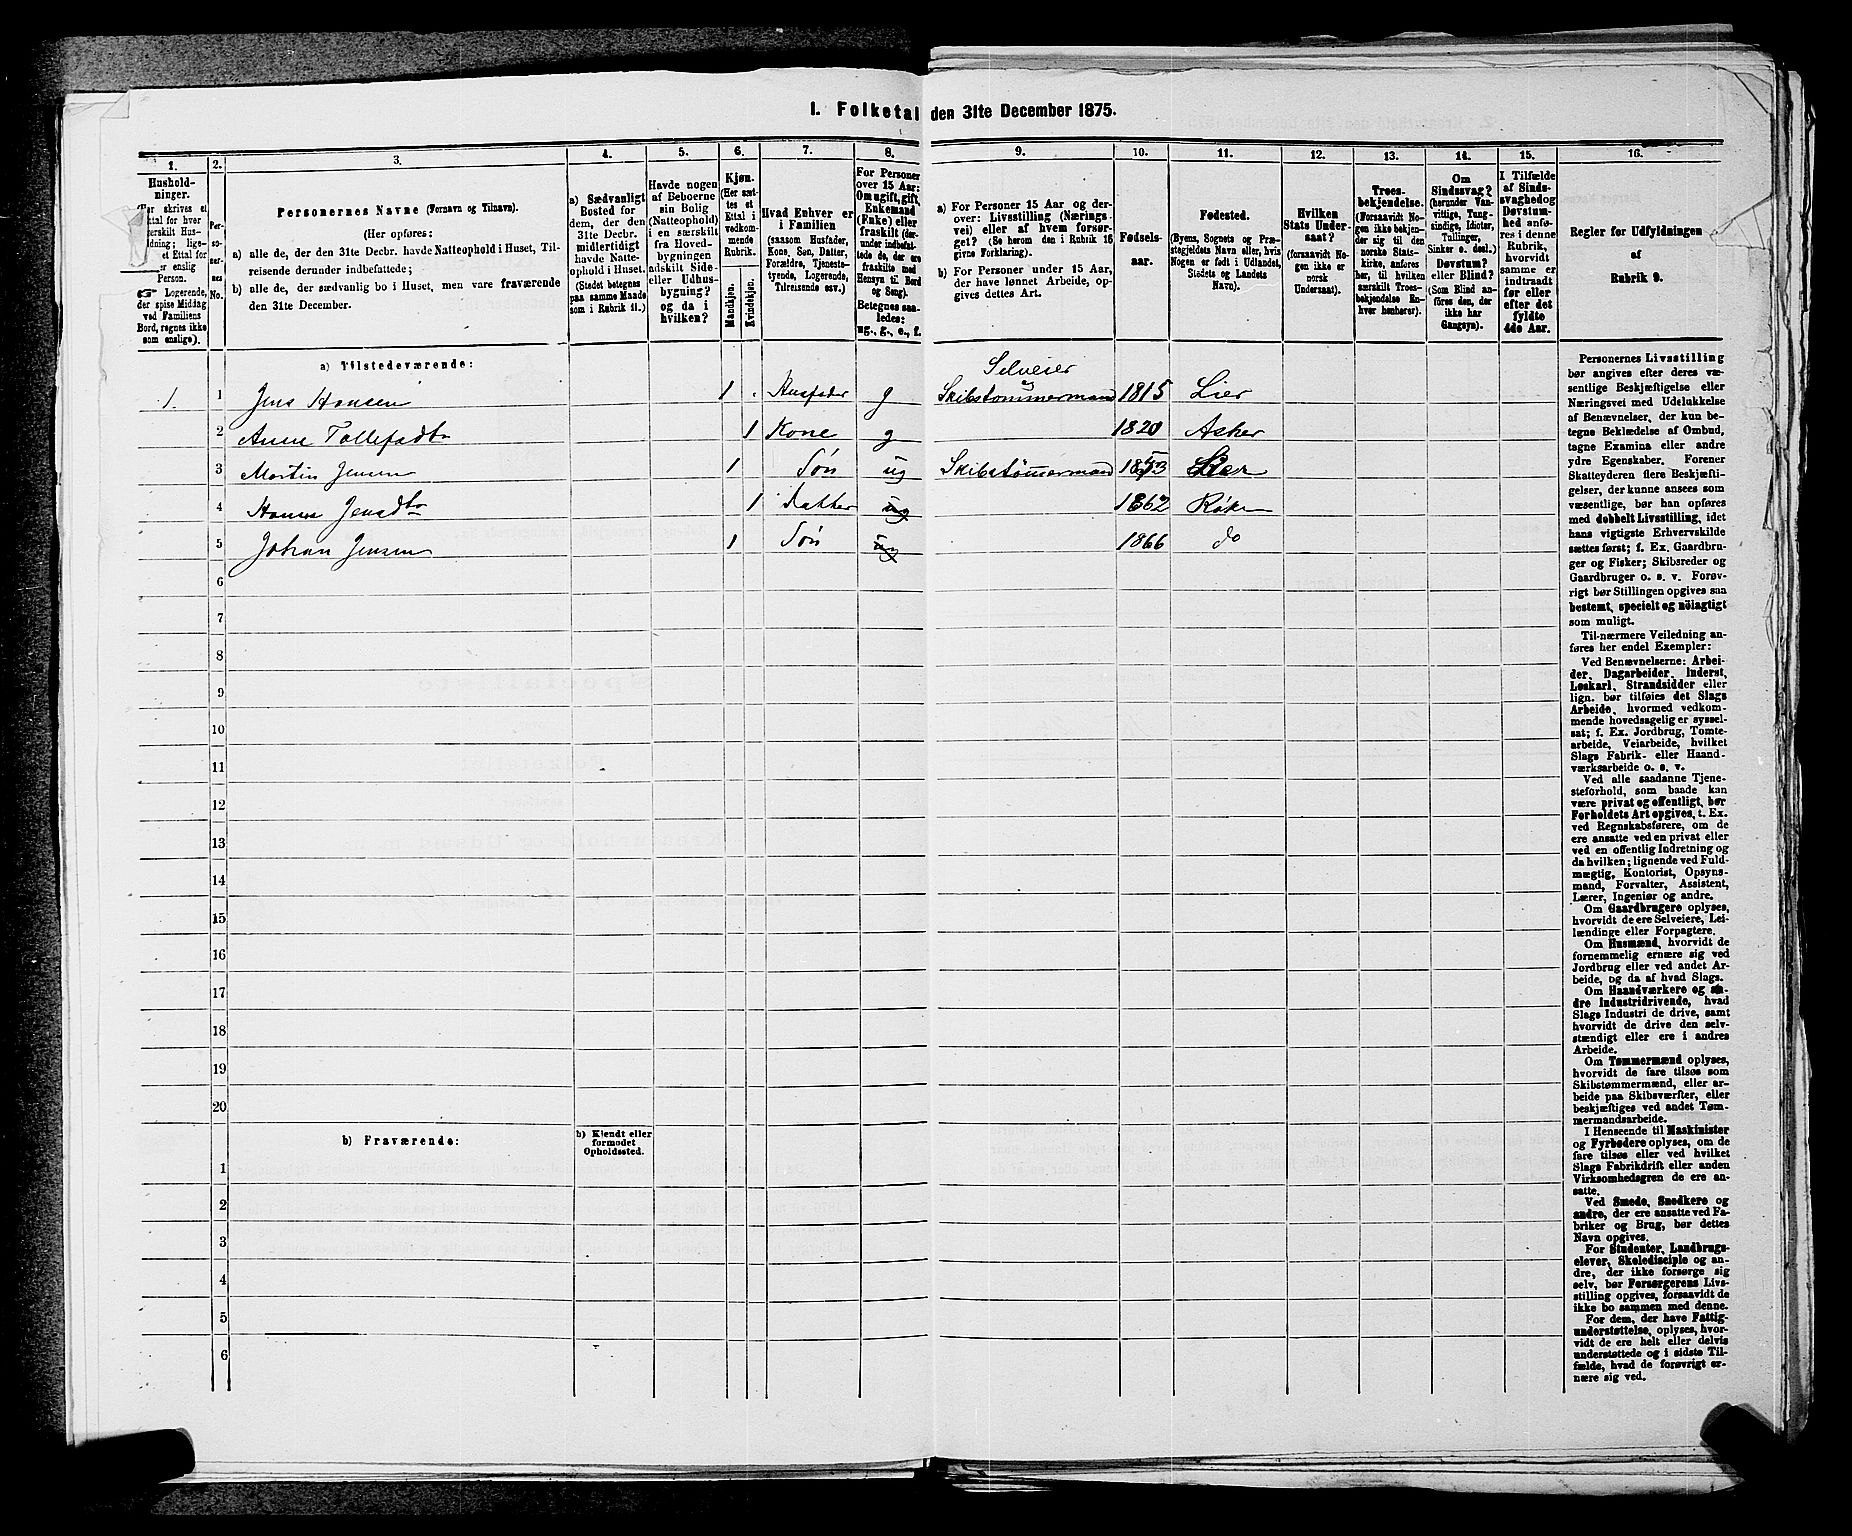 I. Folketal den 31te December 1875.
1. 2. 3. 4. 5. 6. 7. 8. 9. 10. 11. 12. 13. 14. 15. 16.
Personernes Navne (Fornavn og Tilnavn).
(Her opføres:
a) alle de, der den 31te Decbr. havde Natteophold i Huset, Tilreisende derunder indbefattede;
b) alle de, der sædvanlig bo i Huset, men vare fraværende den 31te December.
a) Sædvanligt Bosted for dem, der den 31te Decbr. midlertidigt havde Natteophold i Huset. (Stedet betegnes paa samme Maade som i Rubrik 11.)
Havde nogen af Beboerne sin Bolig (Natteophold) i en særskilt fra Hovedbygningen adskilt Side- eller Udhusbygning? og da i hvilken?
Kjøn. (Her sættes et Ettal i vedkommende Rubrik.
Mandkjøn. Kvindekjøn.
Hvad Enhver er i Familien (saasom Husfader, Kone, Søn, Datter, Forældre, Tjenestetyende, Logerende, Tilreisende osv.)
For Personer over 15 Aar: Om ugift, gift, Enkemand (Enke) eller fraskilt (derunder indbefattede de, der ere fraskilte med Hensyn til Bord og Seng). Betegnes saaledes: ug., g., e., f.
a) For Personer 15 Aar og derover: Livsstilling (Næringsvei) eller af hvem forsørget? (Se herom den i Rubrik 16 givne Forklaring).
b) For Personer under 15 Aar, der have lønnet Arbeide, opgives dettes Art.
Fødselsaar.
Fødested.
(Byens, Sognets og Præstegjeldets Navn eller, hvis Nogen er født i Udlandet, Stedets og Landets Navn).
Hvilken Stats Undersaat? (forsaavidt Nogen ikke er norsk Undersaat).
Troesbekjendelse. (Forsaavidt Nogen ikke bekjender sig til den norske Statskirke, anføres her, til hvilken særskilt Troesbekjendelse Enhver henhører).
Om Sindssvag? (herunder Vanvittige, Tungsindige, Idioter, Tullinger, Sinker o. desl.) Døvstum? eller Blind? (Som Blind anføres den, der ikke har Gangsyn).
I Tilfælde af Sindssvaghed og Døvstumhed anføres i denne Rubrik, hvorvidt samme er indtraadt før eller efter det fyldte 4de Aar.
Regler for Udfyldningen af Rubrik 9.
a) Tilstedeværende:
Selveier
1. 1 Jens Hansen 1 Husfader g Skibstømmermand 1815 Lier
2 Anne Tollefsdtr 1 Kone g 1820 Asker
3 Martin Jensen 1 Søn ug Skibstømmermand 1853 Lier
4 Jensdtr 1 Datter ug 1862 Røken
5 Johan Jensen 1 Søn ug 1866 do
6
7
8
9
10
11
12
13
14
15
16
17
18
19
20
b) Fraværende: b) Kjendt eller formodet Opholdssted.
1
2
3
4
5
6
Personernes Livsstilling
bør angives efter deres væ-
sentlige Beskjæftigelse eller
Næringsvei med Udelukkelse
af Benævnelser, der kun be-
tegne Beklædelse af Ombud,
tagne Examina eller andre
ydre Egenskaber. Forener
Skatteyderen flere Beskjæfti-
gelser, der kunne ansees som
væsentlige, bør han opføres
med dobbelt Livsstilling, idet
hans vigtigste Erhvervskilde
sættes først; f. Ex. Gaardbru-
ger og Fisker; Skibsreder og
Gaardbruger o. s. v. Forøv-
rigt bør Stillingen opgives saa
bestemt, specielt og nöiagtigt
som muligt.
Til nærmere Veiledning an-
føres her endel Exempler:
Ved Benævnelserne: Arbei-
der, Dagarbeider, Inderst,
Løskarl, Strandsidder eller
lign. bør tilføies det Slags
Arbeide, hvormed vedkom-
mende hovedsagelig er syssel-
sat; f. Ex. Jordbrug, Tomte-
arbeide, Veiarbeide, hvilket
Slags Fabrik- eller Haand-
værksarbeide o. s. v.
Ved alle saadanne Tjene-
steforhold, som baade kan
være privat og offentligt, bør
Forholdets Art opgives, t. Ex.
ved Regnskabsførere, om de
ere ansatte ved en privat eller
ved en offentlig Indretning og
da hvilken; lignende ved Fuld-
mægtig, Kontorist, Opsyns-
mand, Forvalter, Assistent,
Lærer, Ingeniør og andre.
Om Gaardbrugere oplyses,
hvorvidt de ere Selveiere, Lei-
lændinge eller Forpagtere.
Om Husmænd, hvorvidt de
fornemmelig ernære sig ved
Jordbrug eller ved andet Ar-
beide, og da af hvad Slags.
Om Haandværkere og an-
dre Industridrivende, hvad
Slags Industri de drive, samt
hvorvidt de drive den selv-
stændigt eller ere i andres
Arbeide.
Om Tømmermænd oplyses,
hvorvidt de fare tilsøs som
Skibstømmermænd, eller ar-
beide paa Skibsværfter, eller
beskjæftiges ved andet Tøm-
mermandsarbeide.
I Henseende til Maskinister
og Fyrbødere oplyses, om de
fare tilsøs eller ved hvilket
Slags Fabrikdrift eller anden
Virksomhedsgren de ere an-
satte.
Ved Smede, Snedkere og
andre, der ere ansatte ved Fa-
briker og Brug, bør dettes
Navn opgives.
For Studenter, Landbrugs-
elever, Skoledisciple og an-
dre, der ikke forsørge sig
selv, bør Forsørgerens Livs-
stilling opgives, forsaavidt de
ikke bo sammen med denne.
For dem, der have Fattig-
understøttelse, oplyses, hvor-
vidt de ere helt eller delvis
understøttede og i sidste Til-
fælde, hvad de forøvrigt er-
nære sig ved.